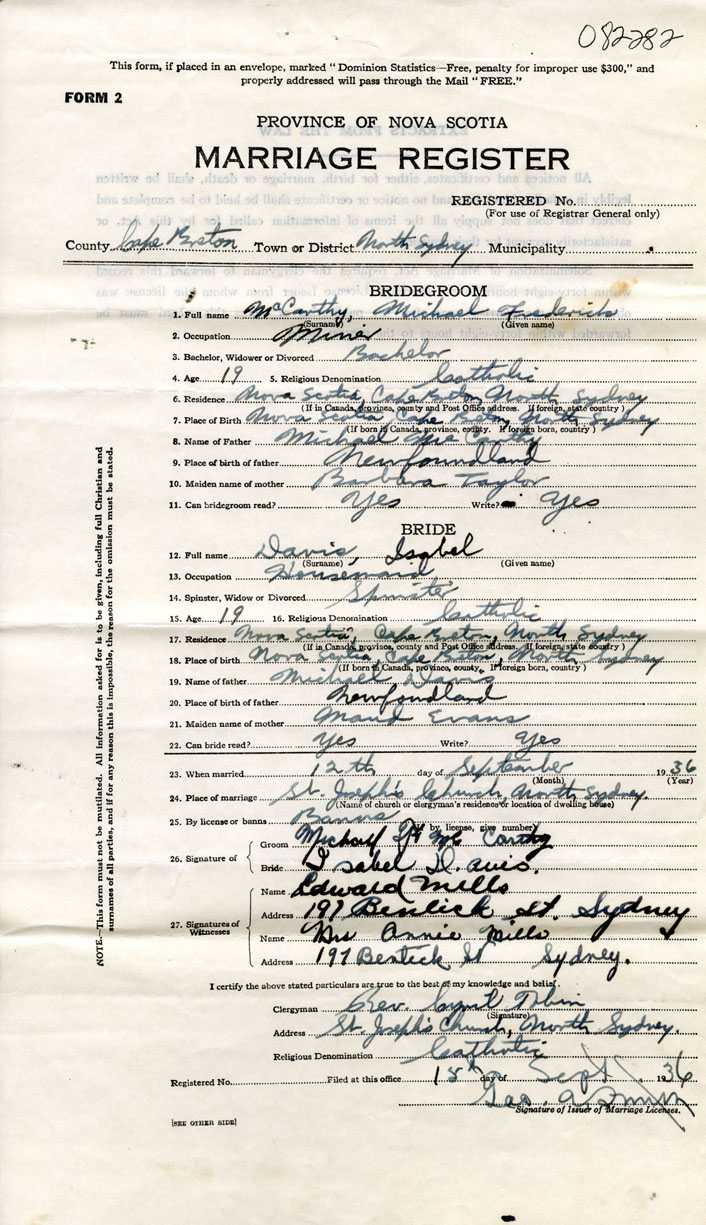 082282
This form, if placed in an envelope, marked "Dominion Statistics—Free, penalty for improper use $300," and
properly addressed will pass through the Mail "FREE."
FORM 2
PROVINCE OF NOVA SCOTIA
MARRIAGE REGISTER
REGISTERED No.
(For use of Registrar General only)
County Cape Breton Town or District North Sydney Municipality
BRIDEGROOM
1. Full name McCarthy, Michael Frederick
(Surname) (Given name)
2. Occupation Miner
3. Bachelor, Widower or Divorced Bachelor
4. Age 19 5. Religious Denomination Catholic
6. Residence Nova Scotia, Cape Breton, North Sydney
(If in Canada, province, county and Post Office address. If foreign, state country)
7. Place of Birth Nova Scotia, Cape Breton, North Sydney
(If born in Canada, province, county. If foreign born, country)
8. Name of Father Michael McCarthy
9. Place of birth of father Newfoundland
10. Maiden name of mother Barbara Taylor
11. Can bridegroom read? Yes Write? Yes
BRIDE
12. Full name Davis, Isabel
(Surname) (Given name)
13. Occupation Housemaid
14. Spinster, Widow or Divorced Spinster
15. Age 19 16. Religious Denomination Catholic
17. Residence Nova Scotia, Cape Breton, North Sydney
(If in Canada, province, county and Post Office address. If foreign, state country)
18. Place of birth Nova Scotia, Cape Breton, North Sydney
(If born in Canada, province, county. If foreign born, country)
19. Name of father Michael Davis
20. Place of birth of father Newfoundland
21. Maiden name of mother Maud Evans
22. Can bride read? Yes Write? Yes
23. When married 12th day of September 1936
(Month) (Year)
24. Place of marriage St. Joseph's Church, North Sydney.
(Name of church or clergyman's residence or location of dwelling house)
25. By license or banns Banns
(If by license, give number)
26. Signature of
Groom Michael McCarthy
Bride Isabel Davis.
27. Signatures of Witnesses
Name Edward Mills
Address 197 Bentick St. Sydney
Name Mrs Annie Mills
Address 197 Bentick St Sydney.
I certify the above stated particulars are true to the best of my knowledge and belief.
Clergyman Rev. Cyril Tobin
(Signature)
Address St. Joseph's Church, North Sydney.
Religious Denomination Catholic
Registered No. Filed at this office 15th day of Sept 1936
Geo.
Signature of Issuer of Marriage Licenses.
[SEE OTHER SIDE]
NOTE.—This form must not be mutilated. All information asked for is to be given, including full Christian and
surnames of all parties, and if for any reason this is impossible, the reason for the omission must be stated.